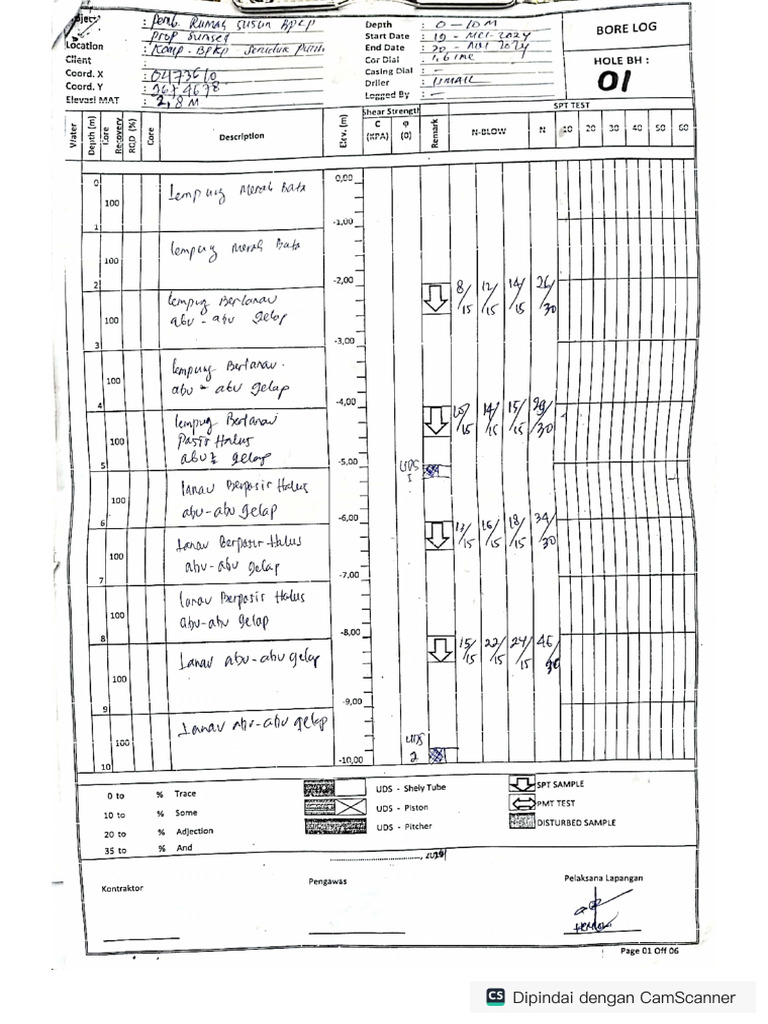 Project : Pemb. Rumah Susun BPKP
Prop Sumsel
Location : Komp. BPKP
Client :
Coord. X : 0473610
Coord. Y : 9674678
Elevasi MAT : 2,8 M
Depth : 0 - 10 M
Start Date : 19 - MEI - 2024
End Date : 20 - MEI 2024
Cor Dial
Casing Dial : -
Driler : UMAR
Logged By : -
BORE LOG
HOLE BH :
01
Water
Depth (m)
Core Recovery
RQD (%)
Core
Description
Elev. (m)
Shear Strength
C (KPA)
φ (0)
Remark
SPT TEST
N-BLOW
N
10 20 30 40 50 60
0 100 Lempung Merah Bata 0,00
1 100 Lempung Merah Bata -1,00
2 100 Lempung Berlanau -2,00 8/15 12/15 14/15 26/30
abu - abu gelap
3 100 Lempung Berlanau. -3,00
abu - abu gelap
4 100 Lempung Berlanau -4,00 10/15 14/15 15/15 29/30
Pasir Halus
abu2 gelap
5 100 Lanau Berpasir Halus -5,00 UDS 1
abu-abu gelap
6 100 Lanau Berpasir Halus -6,00 13/15 16/15 18/15 34/30
abu-abu gelap
7 100 Lanau Berpasir Halus -7,00
abu-abu gelap
8 100 Lanau abu-abu gelap -8,00 15/15 22/15 24/15 46/30
9 100 Lanau abu-abu gelap -9,00
10 -10,00 UDS 2
0 to % Trace
10 to % Some
20 to % Adjection
35 to % And
UDS - Shely Tube
UDS - Piston
UDS - Pitcher
SPT SAMPLE
PMT TEST
DISTURBED SAMPLE
Kontraktor
Pengawas
Pelaksana Lapangan
Page 01 Off 06
CS Dipindai dengan CamScanner